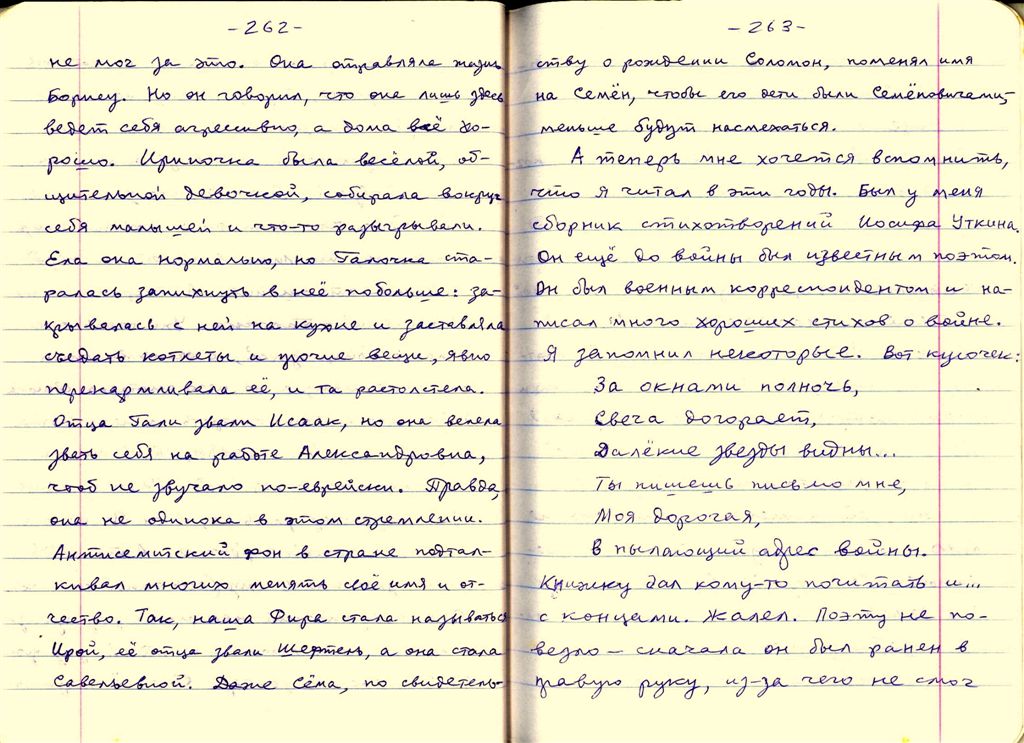 -262-
не мог за это. Она отравляла жизнь
Борису. Но он говорил, что она лишь здесь
ведет себя агрессивно, а дома всё хо-
рошо. Ирипочка была весёлой, об-
щительной девочкой, собирала вокруг
себя малышей и что-то разыгрывали.
Ела она нормально, но Галочка ста-
ралась запихнуть в неё побольше: за-
крывалась с ней на кухне и заставляла
съедать котлеты и прочие вещи, явно
перекармливала её, и та растолстела.
Отца Гали звали Исаак, но она велела
звать себя на работе Александровна,
чтоб не звучало по-еврейски. Правда,
она не одинока в этом стремлении.
Антисемитский фон в стране подтал-
кивал многих менять своё имя и от-
чество. Так, наша Фира стала называться
Ирой, её отца звали Шефтель, а она стала
Савельевной. Даже Сёма, по свидетель-
-263-
ству о рождении Соломон, поменял имя
на Семён, чтобы его дети были Семёновичами,-
меньше будут насмехаться.
А теперь мне хочется вспомнить,
что я читал в эти годы. Был у меня
сборник стихотворений Иосифа Уткина.
Он ещё до войны был известным поэтом.
Он был военным корреспондентом и на-
писал много хороших стихов о войне.
Я запомнил некоторые. Вот кусочек:
За окнами полночь,
Свеча догорает,
Далёкие звезды видны...
Ты пишешь письмо мне,
Моя дорогая,
В пылающий адрес войны.
Книжку дал кому-то почитать и...
с концами. Жалел. Поэту не по-
везло – сначала он был ранен в
правую руку, из-за чего не смог